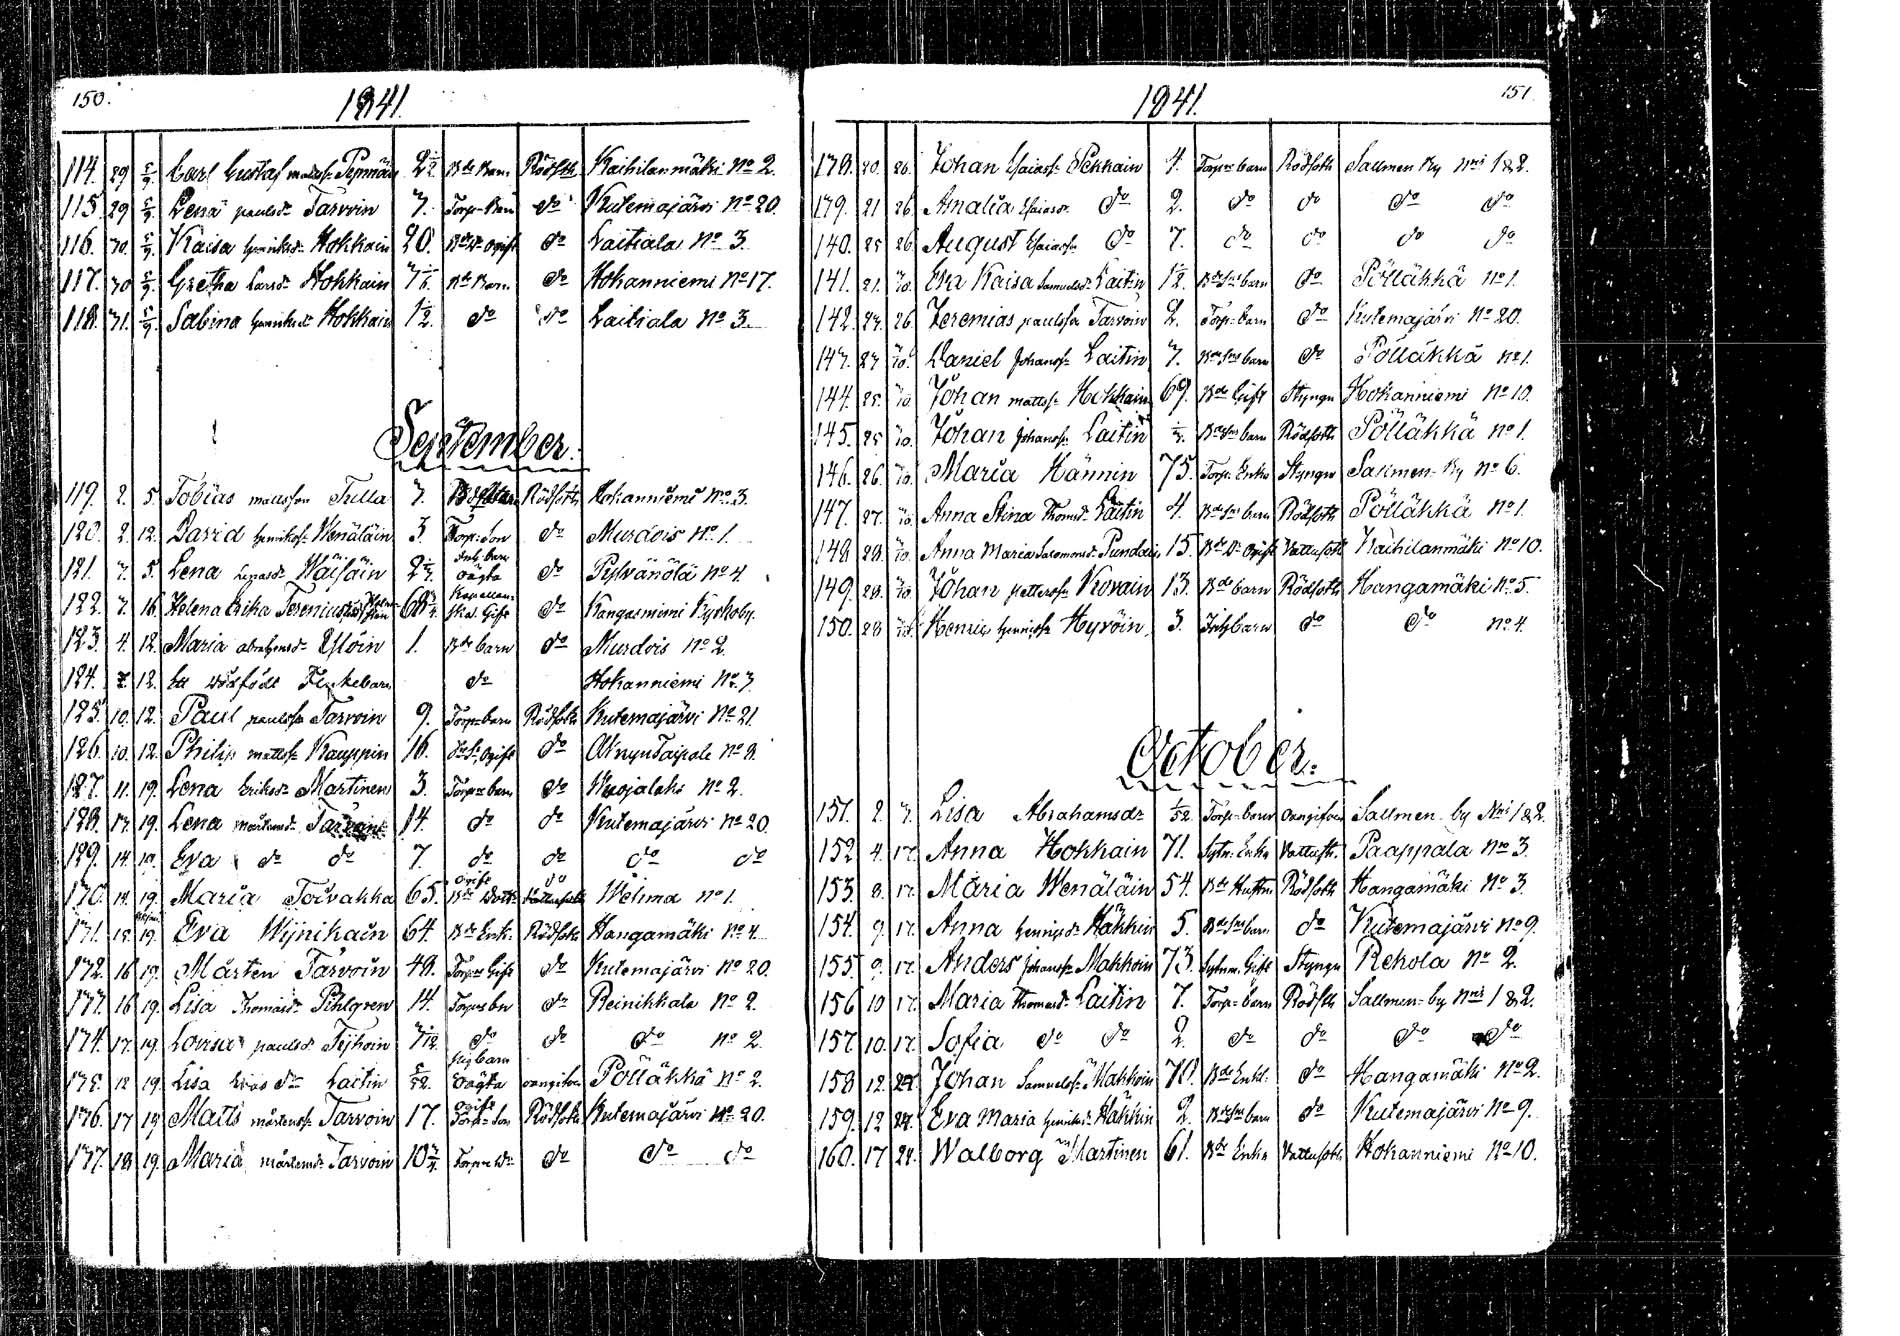 150.
1841.
114. 29 5/9. Carl Gustaf matts: 2 1/2 Bde Barn Rödsoth Kaihilanmäki No 2.
115. 29 5/9. Lena paulsdr Tarvoin 3. Torp-Barn do Kutemajärvi No 20.
116. 30. 5/9. Kaisa henriksdr Hokkain 20. Bde Dr ogift do Laitiala No 3.
117. 30 5/9. Gretha larsdr Hokkain Bde Barn do Hokanniemi No 17.
118. 31. 5/9. Sabina henriksdr Hokkain 1/2. do do Laitiala No 3.
September.
119. 2. 5. Tobias mattsson Tulla 3. Rödsoth Hokanniemi No 3.
120. 2. 12. David henrikss: Wenäläin 3. Torp: Son do Murdois No 1.
121. 3. 5. Lena Wäisäin Inh: barn oägta do Pylvänälä No 4.
122. 3. 16. Helena Erika Gift do Kangasniemi Kyrkoby.
123. 4. 12. Maria abrahamsdr Ylöin 1. Bde barn do Murdois No 2.
124. 7. 12. Ett dödfödt Flickebarn do Hokanniemi No 3.
125. 10. 12. Paul paulss: Tarvoin 9. Torp=barn Rödsoth Kutemajärvi No 21.
126. 10. 12. Philip mattss: Kauppin 16. Ogift do No 8.
127. 11. 19. Lena Eriksdr Martinen 3. Torp=barn do No 2.
128. 13. 19. Lena mårtensdr Tarvoin 14. do do Kutemajärvi No 20.
129. 14. 19. Eva do do 7. do do do do
130. 14. 19. Maria Toivakka 65. ogift Wehma No 1.
131. 15. 19. Eva Wijnikain 64. Bde Enk. Rödsoth Hangamäki No 4.
132. 16 19. Mårten Tarvoin 48. Torp: Gift do Kutemajärvi No 20.
133. 16 19. Lisa Thomasdr Pihlgren 14. do Reinikkala No 2.
134. 17. 19. Lovisa paulsdr Tijhoin do do do No 2.
135. 12 19. Lisa Laitin 5/52. Inh: barn oägta oangifven Pölläkkä No 2.
136. 17 19 Matts mårtenss: Tarvoin 17. ogift Torp: Son Rödsoth Kutemajärvi No 20.
137. 18. 19. Maria mårtensdr Tarvoin 10 3/4. Torp= Dr do do do
151.
1841.
138. 20. 26. Johan Esaiass: Pekkain 4. Torp: barn Rödsoth Sallmen By Nris 1 & 2.
139. 21 26. Amalia Esaiasdr do 2. do do do do
140. 25 26 August Esaiass: do 7. do do do do
141. 21. 3/10. Eva Kaisa Samuelsdr Laitin 1/2. barn do Pölläkkä No 1.
142. 23. 26. Jeremias paulsson Tarvoin 2. Torp=barn do Kutemajärvi No 20.
143. 23 3/10. Daniel Johanss: Laitin 3. barn do Pölläkkä No 1.
144. 25. 3/10. Johan mattss: Hokkain 69. Bde Gift Styngn Hokanniemi No 10.
145. 25 3/10. Johan Johanss: Laitin barn Rödsoth Pölläkkä No 1.
146. 26. 3/10. Maria Hännin 75. Torp: Enka Styngn Sallmen- By No 6.
147. 27. 3/10. Anna Stina Thomsdr Laitin 4. barn Rödsoth Pölläkkä No 1.
148 28. 3/10. Anna Maria Salomonsdr 15. Bde Dr Ogift Vattusoth Kaihilanmäki No 10.
149. 28. 3/10 Johan petterss: Kovain 13. Bde barn Rödsoth Hangamäki No 5.
150. 28 3/10. Henric henricss: Hyvöin 3. Inh: barn do do No 4.
October.
151. 2. 3. Lisa Abrahamsdr 1/52. Torp=barn oangifven Sallmen- by Nris 1 & 2.
152 4. 17. Anna Hokkain 71. Enka Vattusth. Paappala No 3.
153. 8. 17. Maria Wenäläin 54. Bde Hustru Rödsoth Hangamäki No 3.
154. 9. 17. Anna henricsdr Häkkin 5. barn do Kutemajärvi No 9.
155. 9. 17. Anders Johanss: Makkoin 73. Sytnm. Gift Styngn Rekola No 2.
156 10 17. Maria Thomasdr Laitin 7. Torp=barn Rödsth Sallmen=by Nris 1 & 2.
157 10. 17. Sofia do do 2. do do do do
158 12. 24. Johan Samuelss: Makkoin 70. Bde Enkl: do Hangamäki No 2.
159. 12 24. Eva Maria henriksdr Häkkin 2. barn do Kutemajärvi No 9.
160. 17 24. Walborg Martinen 61. Bde Enka Vattusoth Hokanniemi No 10.